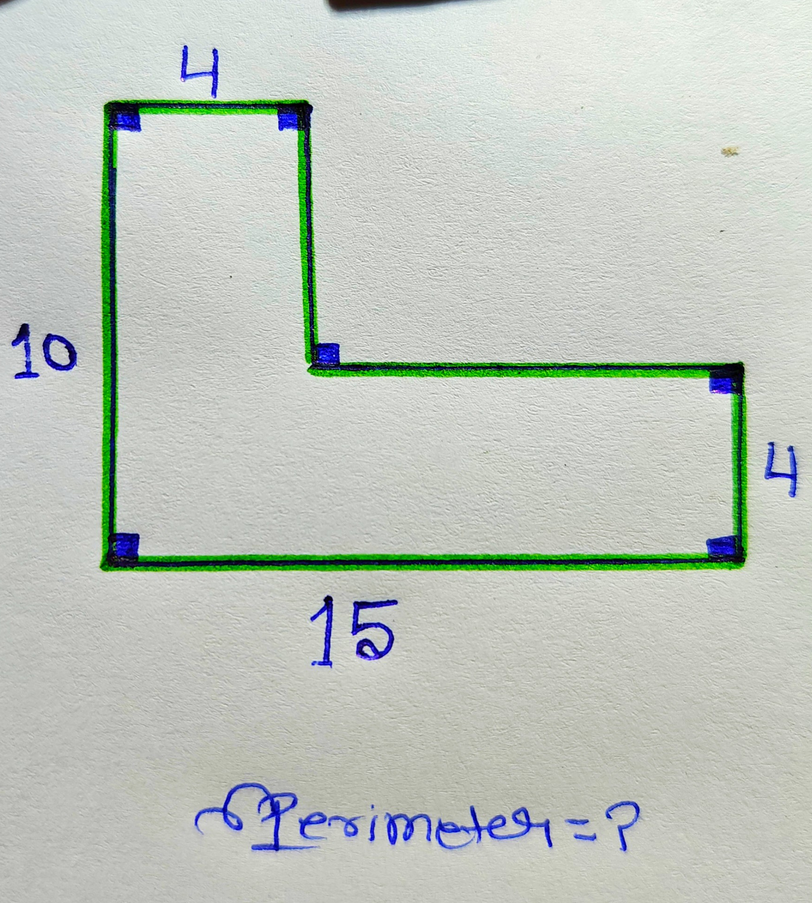 4
10
4
15
Perimeter=?